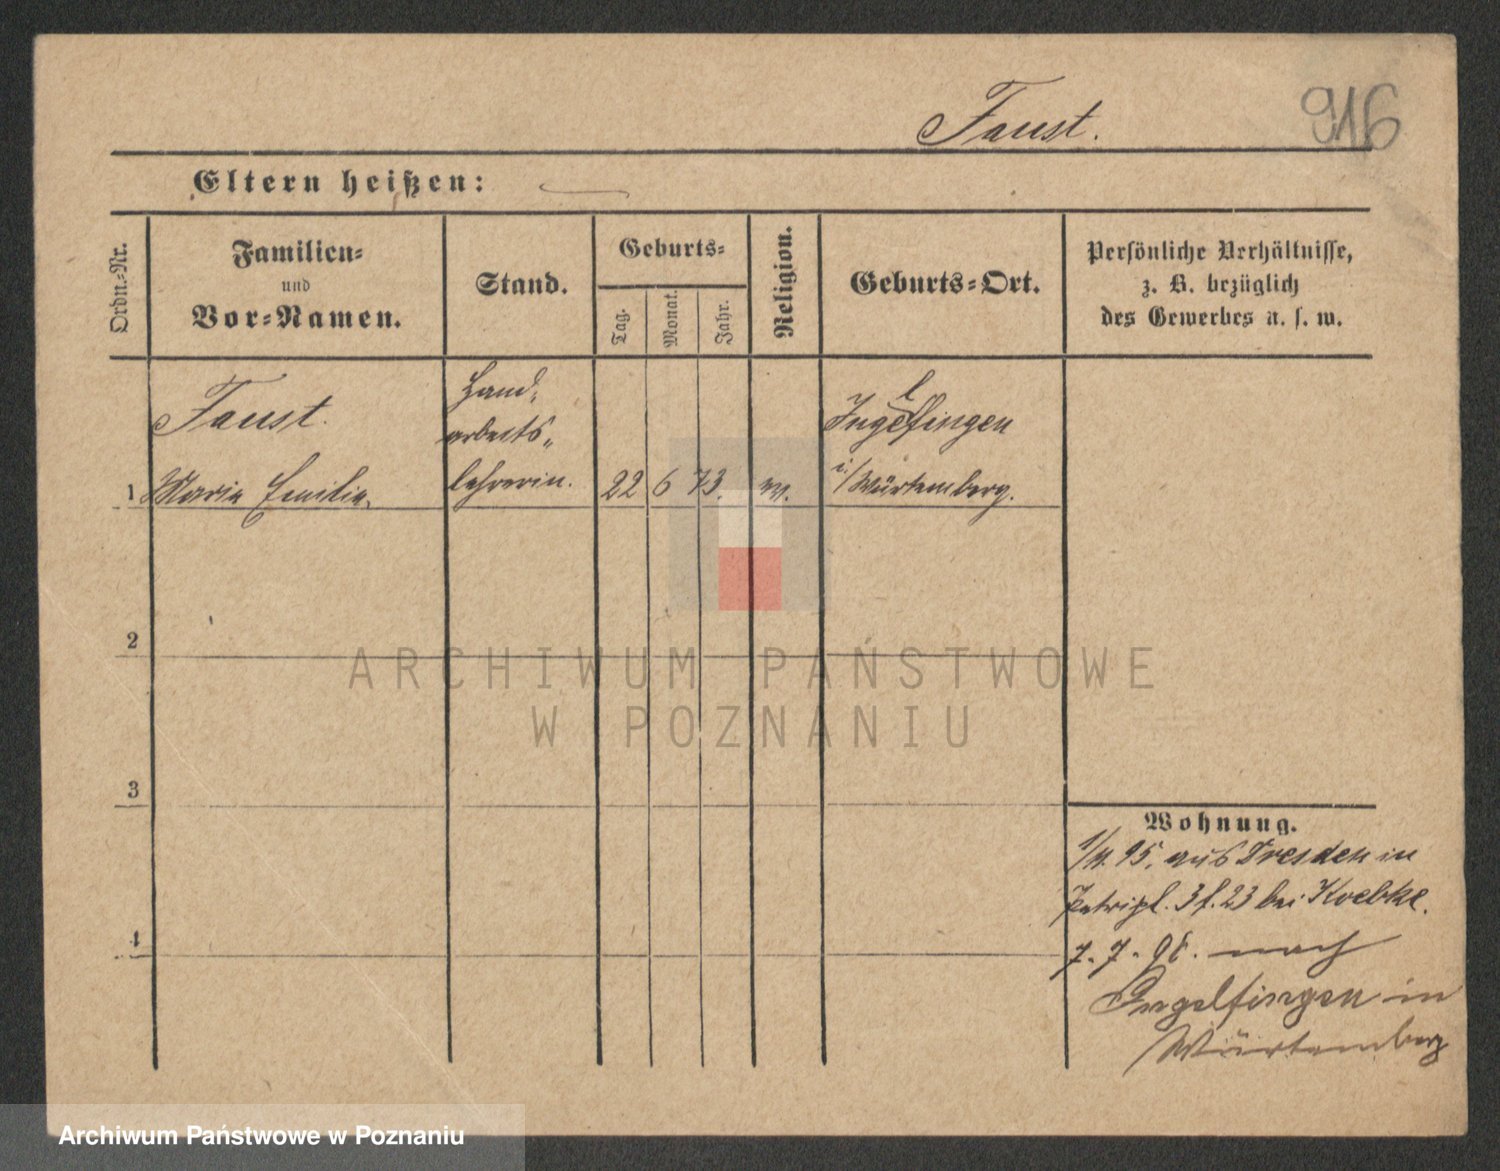 Faust.
916
Eltern heißen:
Ordn.-Nr.
Familien-
und
Vor-Namen.
Stand.
Geburts-
Tag.
Monat.
Jahr.
Religion.
Geburts-Ort.
Persönliche Verhältnisse,
z. B. bezüglich
des Gewerbes u. s. w.
Faust.
Hand-
arbeits-
Ingelfingen
1 Maria Emilie. lehrerin. 22 6 73. i/Würtemberg.
2
3
4
Wohnung.
95. aus Dresden in
Petripl. 3 f. 23 bei Koebke.
7. 7. nach
Ingelfingen in
Würtemberg
ARCHIWUM PAŃSTWOWE
W POZNANIU
Archiwum Państwowe w Poznaniu